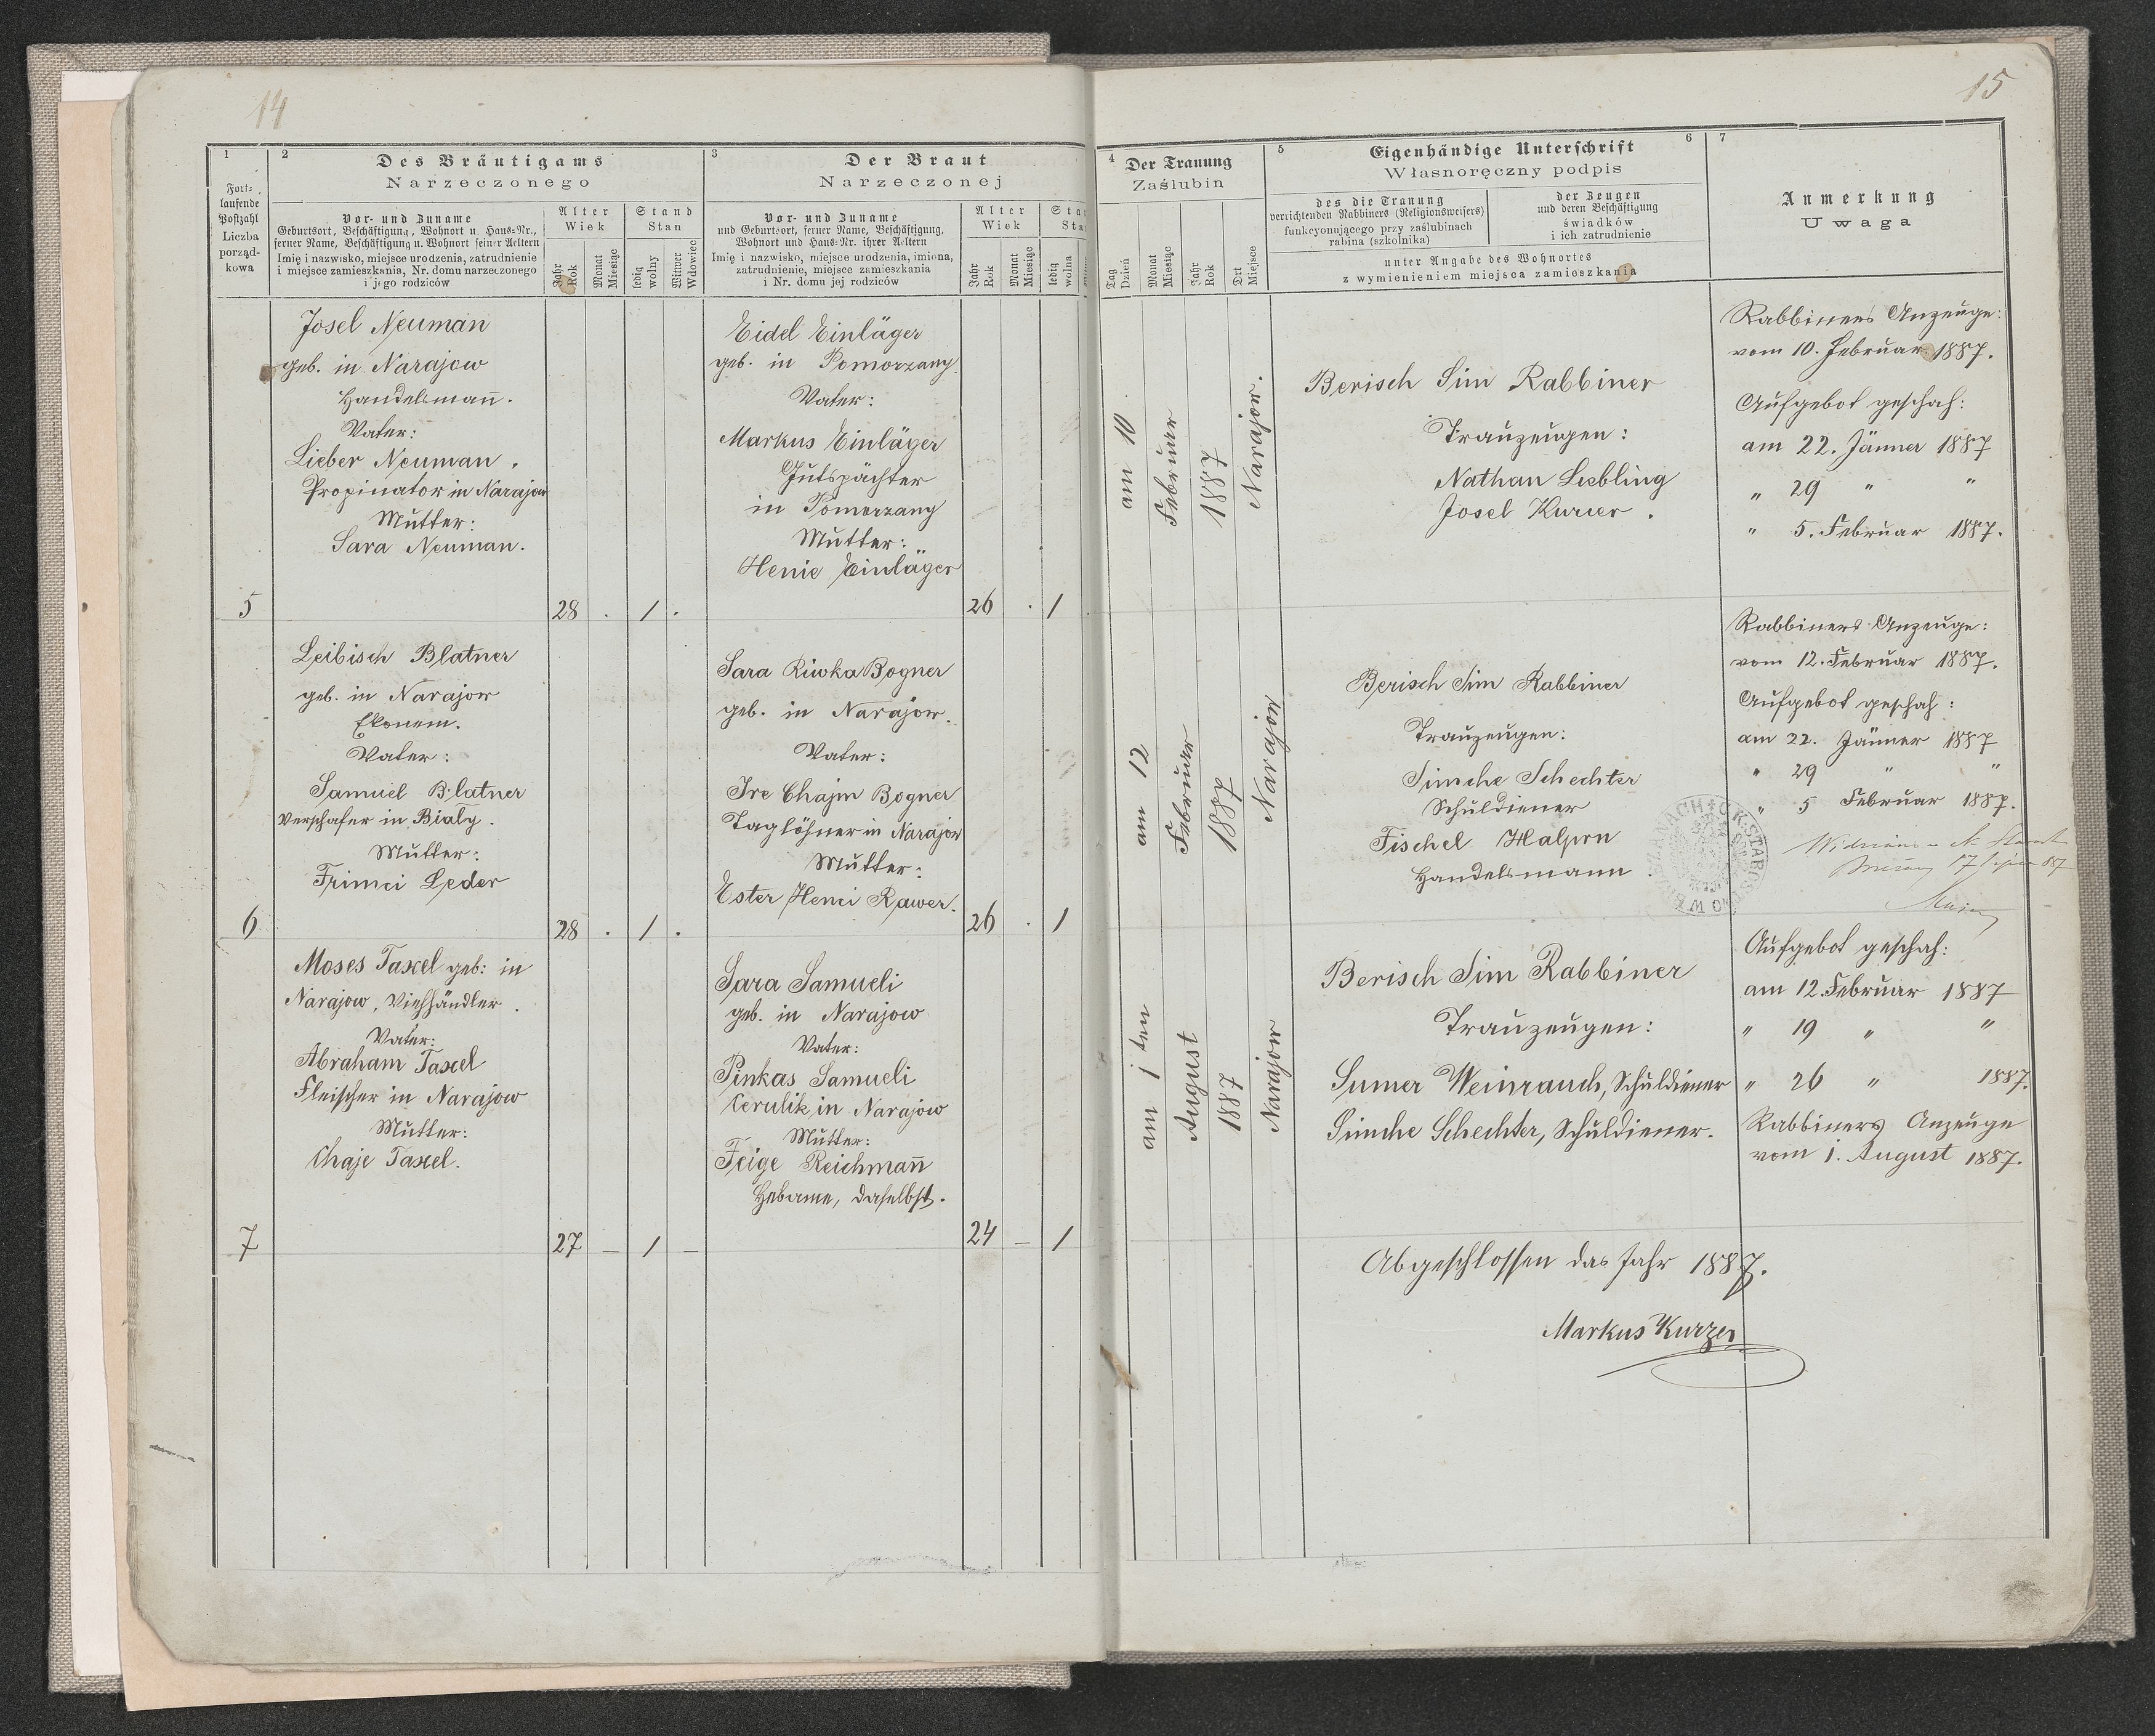 14
15
1
Fort-
laufende
Postzahl
Liczba
porząd-
kowa
2
Des Bräutigams
Narzeczonego
Vor- und Zuname
Geburtsort, Beschäftigung, Wohnort u. Haus-Nr.,
ferner Name, Beschäftigung u. Wohnort seiner Aeltern
Imię i nazwisko, miejsce urodzenia, zatrudnienie
i miejsce zamieszkania, Nr. domu narzeczonego
i jego rodziców
Alter
Wiek
Jahr
Rok
Monat
Miesiąc
Stand
Stan
ledig
wolny
Witwer
Wdowiec
3
Der Braut
Narzeczonej
Vor- und Zuname
und Geburtsort, ferner Name, Beschäftigung,
Wohnort und Haus-Nr. ihrer Aeltern
Imię i nazwisko, miejsce urodzenia, imiona,
zatrudnienie, miejsce zamieszkania
i Nr. domu jej rodziców
Alter
Wiek
Jahr
Rok
Monat
Miesiąc
ledig
wolna
4
Der Trauung
Zaślubin
Tag
Dzień
Monat
Miesiąc
Jahr
Rok
Ort
Miejsce
5
Eigenhändige Unterschrift
6
Własnoręczny podpis
des die Trauung
verrichtenden Rabbiners (Religionsweisers)
funkcyonującego przy zaślubinach
rabina (szkolnika)
der Zeugen
und deren Beschäftigung
świadków
i ich zatrudnienie
unter Angabe des Wohnortes
z wymienieniem miejsca zamieszkania
7
Anmerkung
Uwaga
5
Josel Neuman
geb. in Narajow
Handelsman̄.
Vater:
Lieber Neuman.
Propinator in Narajow
Mutter:
Sara Neuman.
28 . 1 .
Eidel Einläger
geb. in Pomorzany.
Vater:
Markus Einläger
Gutspächter
in Pomorzany
Mutter:
Henie Einläger
26 . 1
am 10
Februar
1887
Narajow.
Berisch Sim Rabbiner
Trauzeugen:
Nathan Liebling
Josel Kurzer.
Rabbiners Anzeuge:
vom 10. Februar 1887.
Aufgebot geschah:
am 22. Jänner 1887
" 29 " "
" 5. Februar 1887.
6
Leibisch Blatner
geb. in Narajow
Ekonem.
Vater:
Samuel Blatner
Verschafer in Bialy.
Mutter:
Frimci Leder
28 . 1 .
Sara Riwka Bogner
geb. in Narajow.
Vater:
Ire Chajm Bogner
Taglöhner in Narajow
Mutter:
Ester Henci Rawer.
26 . 1
am 12
Februar
1887
Narajow
Berisch Sim Rabbiner
Trauzeugen:
Simche Schechter
Schuldiener
Fischel Halpern
Handelsmann.
Rabbiners Anzeuge:
vom 12. Februar 1887.
Aufgebot geschah:
am 22. Jänner 1887
" 29 " "
" 5 Februar 1887.
7
Moses Taxel geb: in
Narajow, Viehhändler.
Vater:
Abraham Taxel
Fleischer in Narajow
Mutter:
Chaje Taxel.
27 — 1 —
Sara Samueli
geb. in Narajow
Vater:
Pinkas Samueli
Cerulik, in Narajow
Mutter:
Feige Reichman̄
Hebame, daselbst.
24 — 1
am 1 ten
August
1887
Narajow
Berisch Sim Rabbiner
Trauzeugen:
Sumer Weinrauch, Schuldiener
Simche Schechter, Schuldiener.
Aufgebot geschah:
am 12. Februar 1887
" 19 " "
" 26 " 1887.
Rabbiners Anzeuge
vom 1. August 1887.
Abgeschlossen das Jahr 1887.
Markus Kurzer